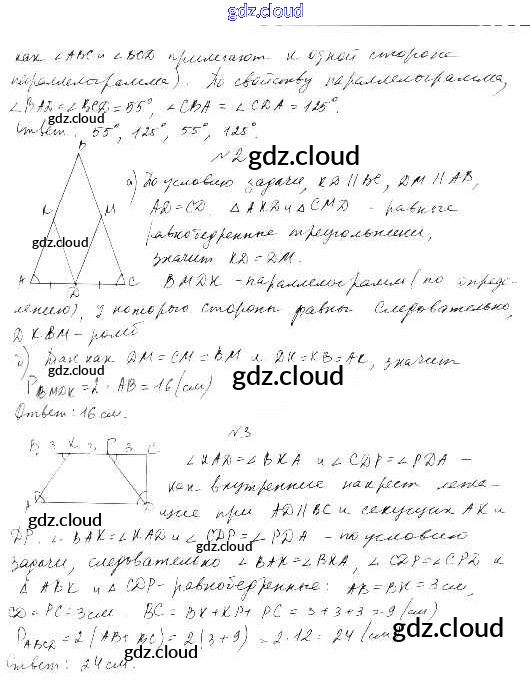 gdz.cloud
как ∠ABC и ∠BCD прилегают к одной стороне
параллелограмма). По свойству параллелограмма,
∠BAD=∠BCD=55°, ∠CBA=∠CDA=125°.
Ответ: 55°, 125°, 55°, 125°.
gdz.cloud
№2
gdz.cloud
B
а) По условию задачи, KD∥BC, DM∥AB,
K M
AD=CD. △AKD и △CMD - равные
gdz.cloud
равнобедренные треугольники,
значит KD=DM.
A D C
BMDK - параллелограмм (по опреде-
лению), у которого стороны равны. Следовательно,
DKBM - ромб
б) Так как DM=CM=BM и DK=KB=AK, значит
P BMDK = 2·AB=16 (см)
gdz.cloud
gdz.cloud
Ответ: 16 см.
№3
B 3 K 3 P 3 C
∠KAD=∠BKA и ∠CDP=∠PDA -
как внутренние накрест лежа-
gdz.cloud
A D
щие при AD∥BC и секущих AK и
gdz.cloud
DP. ∠BAK=∠KAD и ∠CDP=∠PDA - по условию
gdz.cloud
задачи, следовательно ∠BAK=∠BKA, ∠CDP=∠CPD и
△ABK и △CDP - равнобедренные: AB=BK=3 см,
gdz.cloud
CD=PC=3 см. BC=BK+KP+PC=3+3+3=9 (см)
P ABCD = 2(AB+BC)=2(3+9)=2·12=24 (см)
gdz.cloud
gdz.cloud
Ответ: 24 см.